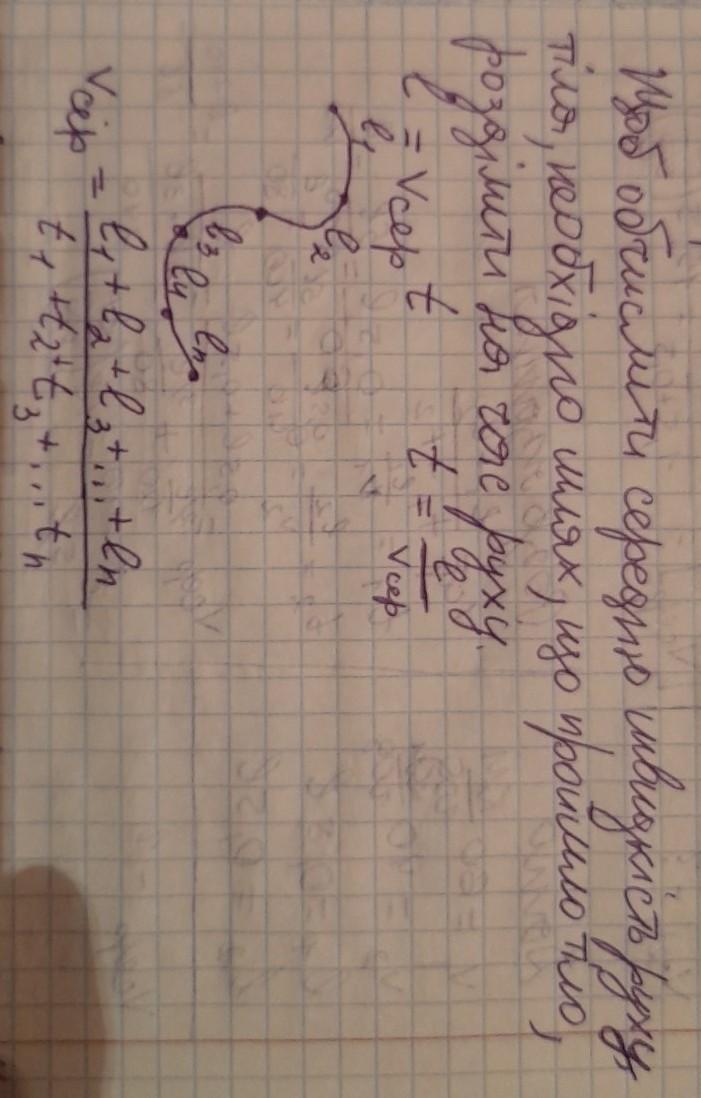 Щоб обчислити середню швидкість руху
тіла, необхідно шлях, що пройшло тіло,
розділити на час руху.
l = vсер t t = l/vсер
l₁ l₂ l₃ l₄ lₙ
vсер = l₁ + l₂ + l₃ + ... + lₙ / t₁ + t₂ + t₃ + ... tₙ